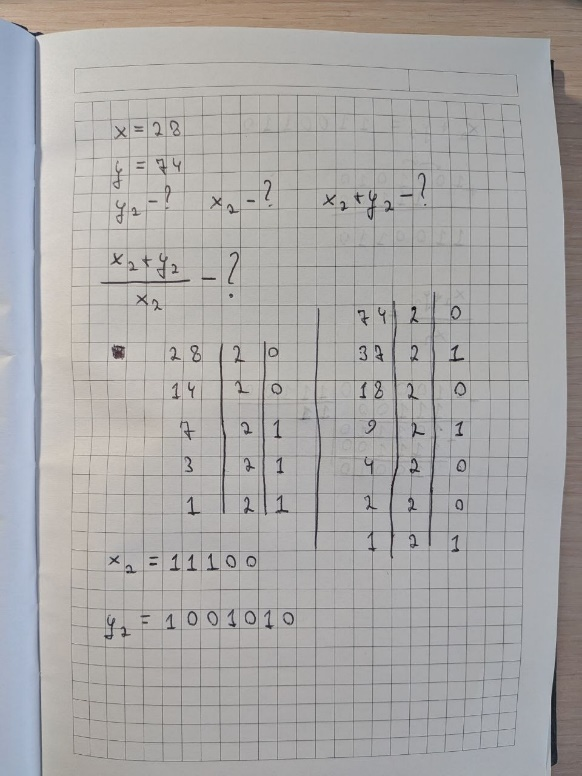 x = 28
y = 74
y₂ - ? x₂ - ? x₂ + y₂ - ?
x₂ + y₂
x₂
- ?
28 2 0
14 2 0
7 2 1
3 2 1
1 2 1
74 2 0
37 2 1
18 2 0
9 2 1
4 2 0
2 2 0
1 2 1
x₂ = 11100
y₂ = 1001010